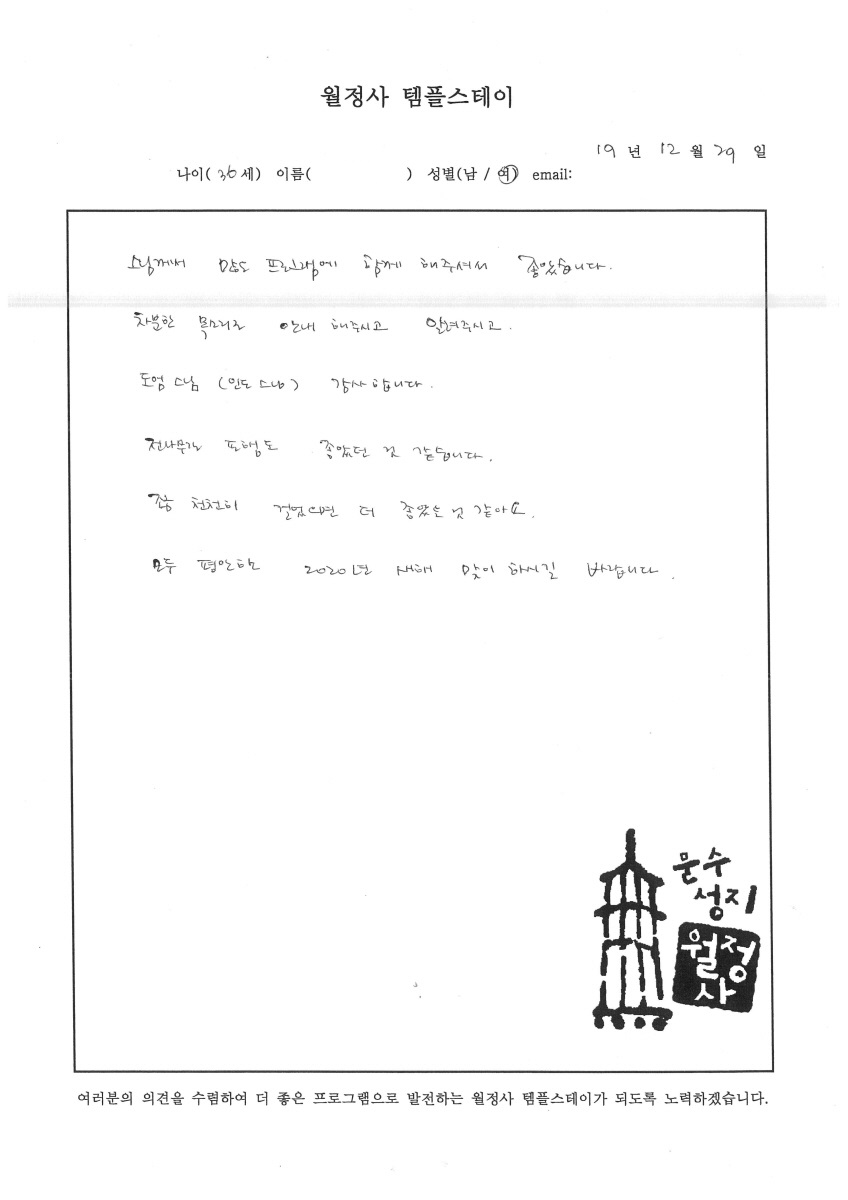 월정사 템플스테이
19 년 12 월 29 일
나이( 36 세) 이름( ) 성별(남 / 여) email:
스님께서 많도 프로그램에 함께 해주셔서 좋았습니다.
차분한 목소리로 안내 해주시고 알려주시고.
도엄 스님 (인도 스님) 감사 합니다.
전나무길 포행도 좋았던 것 같습니다.
좀 천천히 걸었으면 더 좋았을 것 같아요.
모두 평안한 2020년 새해 맞이 하시길 바랍니다.
문수
성지
월정
사
여러분의 의견을 수렴하여 더 좋은 프로그램으로 발전하는 월정사 템플스테이가 되도록 노력하겠습니다.